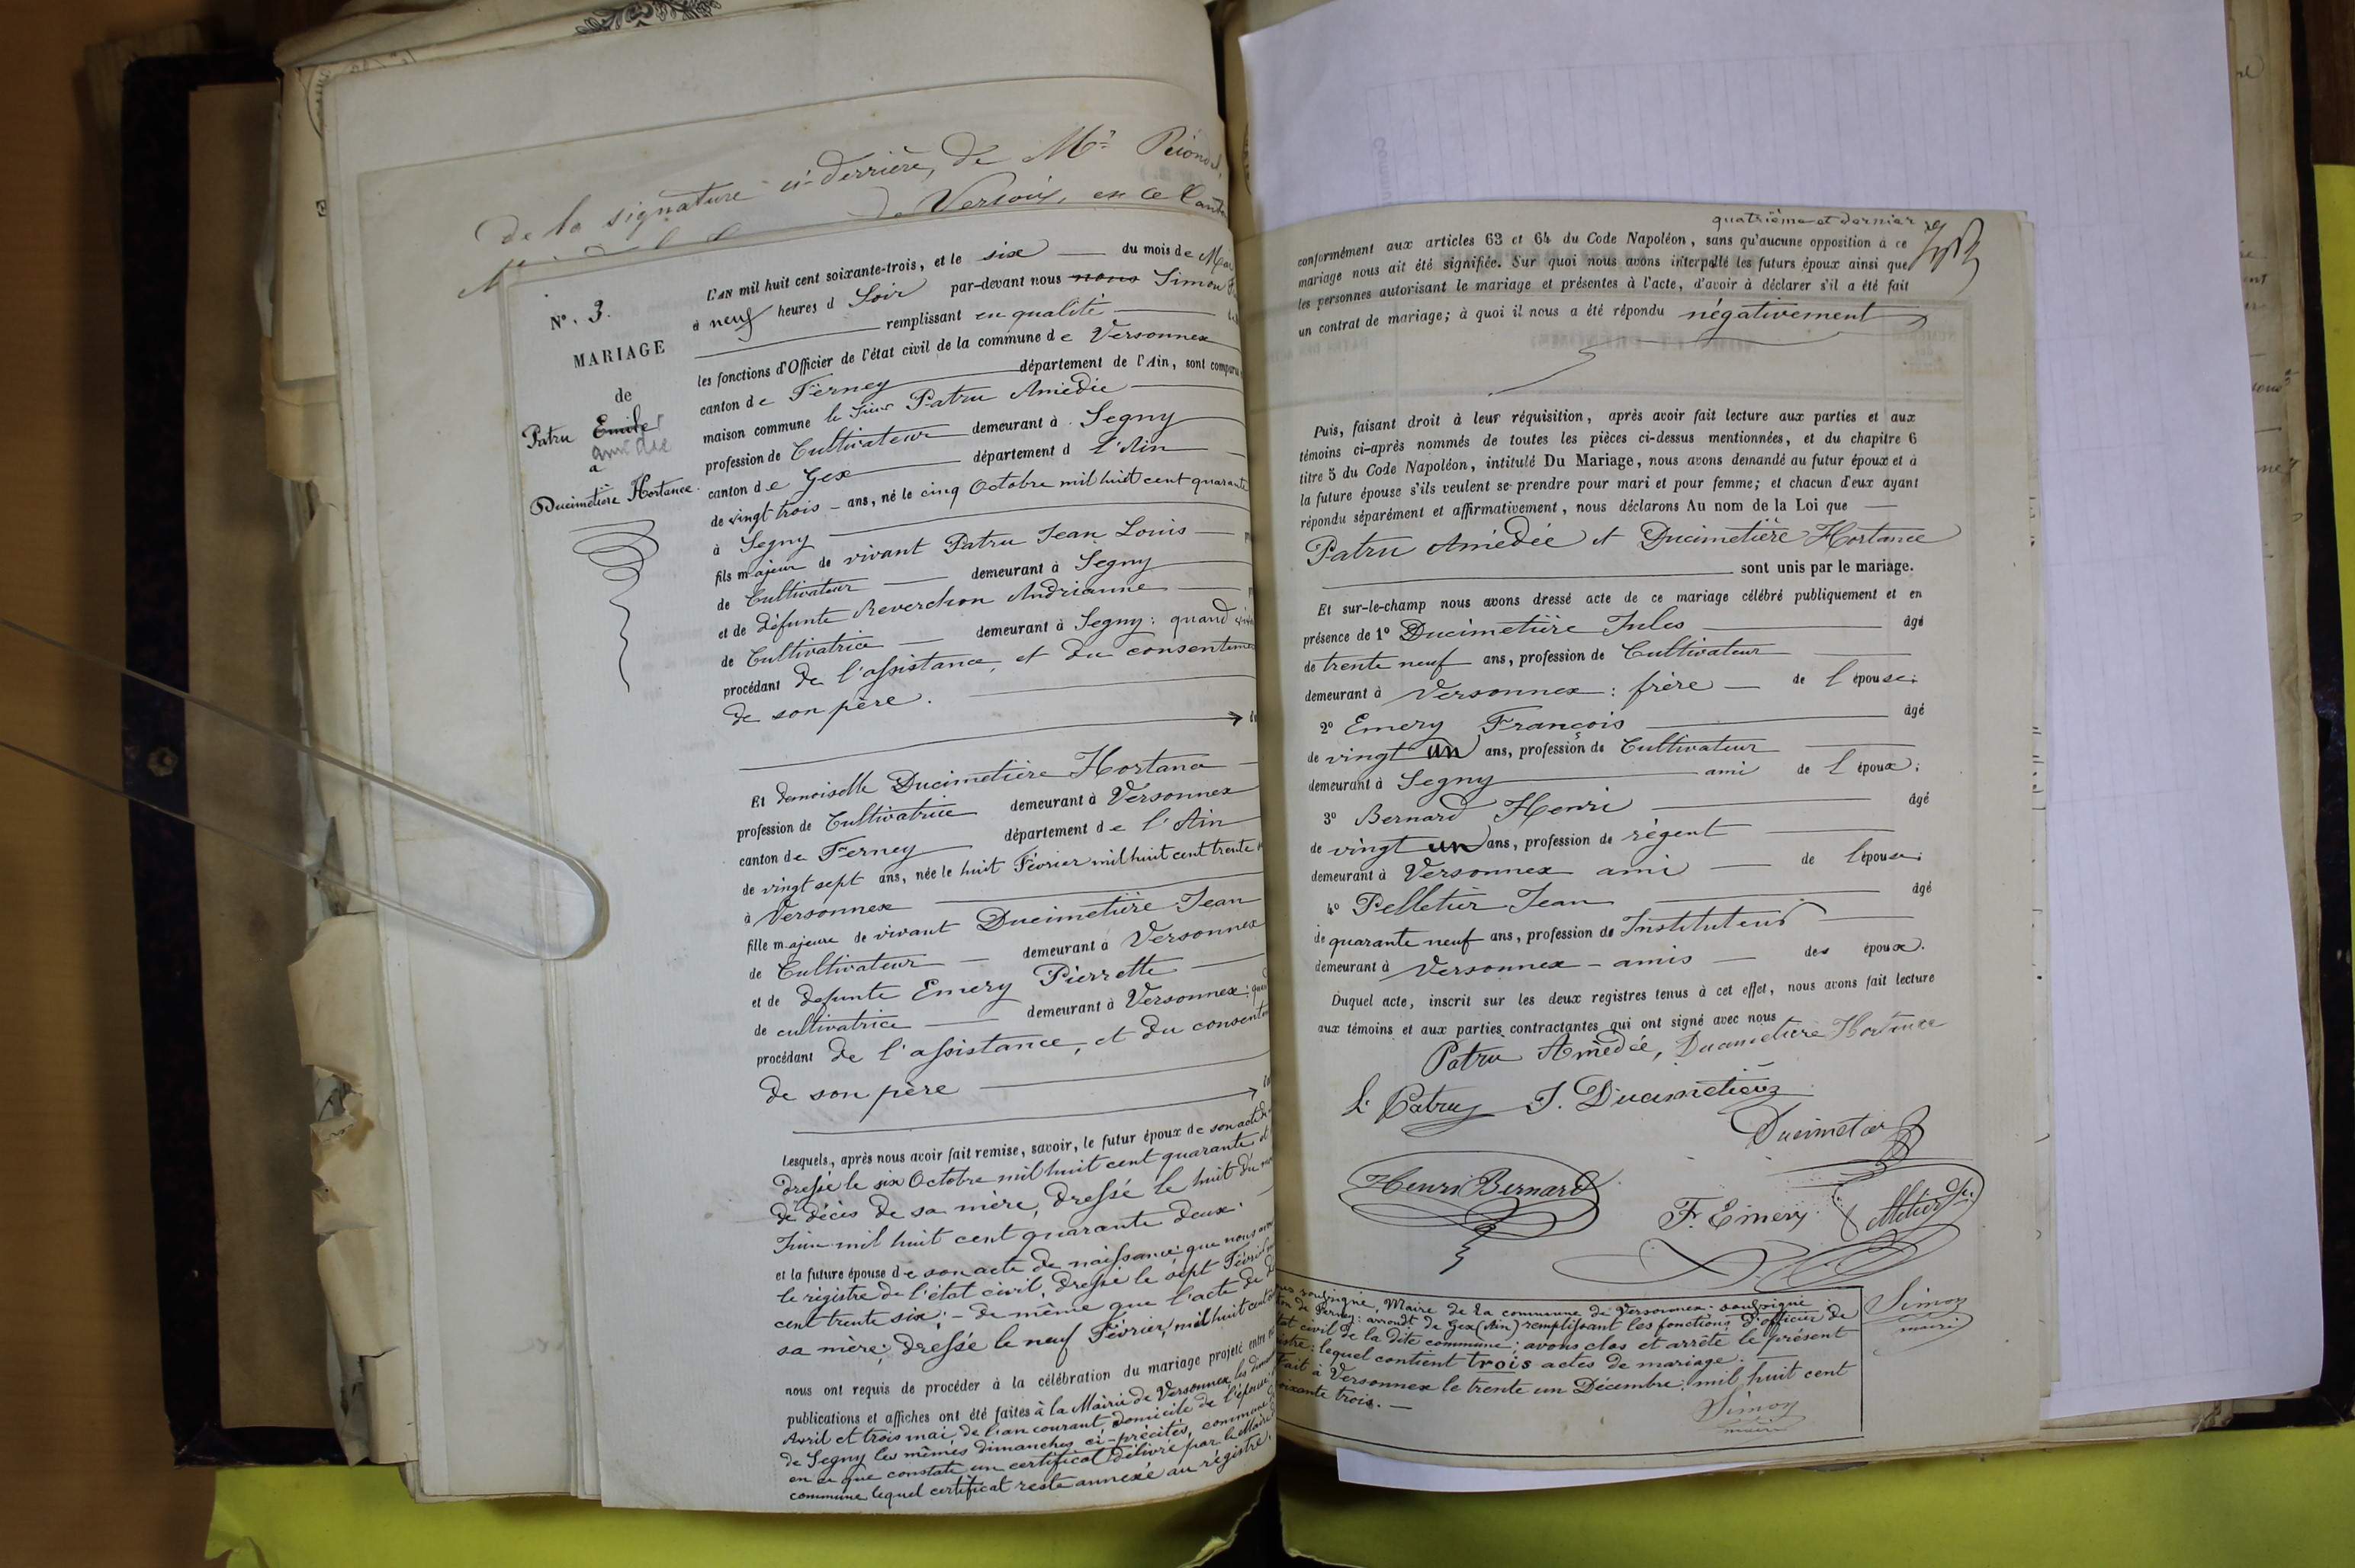 de la signature ci-derrière, de Mr
de Versoix, en ce Cant
N°. 3.
MARIAGE
de
Patru Emile
amédée
à
Ducimetière Hortance.
L'AN mil huit cent soixante-trois, et le six du mois de Mai
à neuf heures d Soir par-devant nous nous Simon
remplissant en qualité
les fonctions d'Officier de l'état civil de la commune de Versonnex
canton de Ferney département de l'Ain, sont comparu
maison commune le Sieur Patru Amédée
profession de Cultivateur demeurant à Segny
canton de Gex département d l'Ain
de vingt trois ans, né le cinq Octobre mil huit cent quarante
à Segny
fils majeur de vivant Patru Jean Louis
de Cultivateur demeurant à Segny
et de défunte Reverchon Andrianne
de Cultivatrice demeurant à Segny : quand
procédant de l'assistance, et du consentime
de son père.
Et demoiselle Ducimetière Hortance
profession de Cultivatrice demeurant à Versonnex
canton de Ferney département de l'Ain
de vingt sept ans, née le huit Février mil huit cent trente
à Versonnex
fille majeure de vivant Ducimetière Jean
de Cultivateur demeurant à Versonnex
et de défunte Emery Pierrette
de cultivatrice demeurant à Versonnex :
procédant de l'assistance, et du consent
de son père
Lesquels, après nous avoir fait remise, savoir, le futur époux de son acte
dressé le six Octobre mil huit cent quarante, et
de décès de sa mère, dressé le huit du
Juin mil huit cent quarante deux.
et la future épouse de son acte de naissance que nous
le régistre de l'état civil, dressé le sept Février
cent trente six ; – de même que l'acte de
sa mère ; dressé le neuf Février, mil huit cent
nous ont requis de procéder à la célébration du mariage projeté entre
publications et affiches ont été faites à la Mairie de Versonnex les
Avril et trois mai, de l'an courant, domicile de l'épouse,
de Segny les mêmes dimanches ci-précités, commune
en ce que constate un certificat délivré par le Maire
commune lequel certificat reste annexé au régistre.
quatrième et dernier
conformément aux articles 63 et 64 du Code Napoléon, sans qu'aucune opposition à ce
mariage nous ait été signifiée. Sur quoi nous avons interpellé les futurs époux ainsi que
les personnes autorisant le mariage et présentes à l'acte, d'avoir à déclarer s'il a été fait
un contrat de mariage; à quoi il nous a été répondu négativement
Puis, faisant droit à leur réquisition, après avoir fait lecture aux parties et aux
témoins ci-après nommés de toutes les pièces ci-dessus mentionnées, et du chapitre 6
titre 5 du Code Napoléon, intitulé Du Mariage, nous avons demandé au futur époux et à
la future épouse s'ils veulent se prendre pour mari et pour femme; et chacun d'eux ayant
répondu séparément et affirmativement, nous déclarons Au nom de la Loi que
Patru Amédée et Ducimetière Hortance
sont unis par le mariage.
Et sur-le-champ nous avons dressé acte de ce mariage célébré publiquement et en
présence de 1° Ducimetière Jules âgé
de trente neuf ans, profession de Cultivateur
demeurant à Versonnex : frère de l'épouse;
2° Emery François âgé
de vingt un ans, profession de Cultivateur
demeurant à Segny ami de l'époux;
3° Bernard Henri âgé
de vingt un ans, profession de régent
demeurant à Versonnex ami de l'épouse;
4° Pelletier Jean âgé
de quarante neuf ans, profession de Instituteur
demeurant à Versonnex – amis des époux.
Duquel acte, inscrit sur les deux registres tenus à cet effet, nous avons fait lecture
aux témoins et aux parties contractantes qui ont signé avec nous
Patru Amédée, Ducimetière Hortence
L. Patru J. Ducimetière
Ducimetier
Henri Bernard
F. Emery
soussigné, Maire de la commune de Versonnex. soussigné
de Ferney : arrondt de Gex (Ain) remplissant les fonctions d'officier de
état civil de la dite commune ; avons clos et arrêté le présent
lequel contient trois actes de mariage.
Fait à Versonnex le trente un Décembre : mil huit cent
soixante trois. —
Simon
maire
Simon
maire